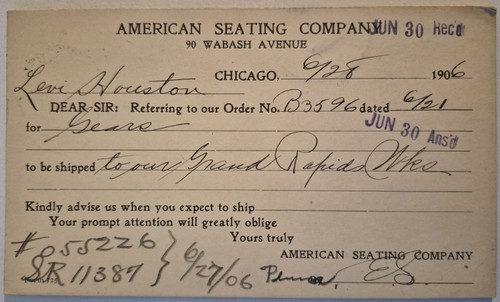 AMERICAN SEATING COMPANY JUN 30 Rec'd
90 WABASH AVENUE
CHICAGO, 6/28 1906
Levi Houston
DEAR SIR: Referring to our Order No. B3596 dated 6/21
for Gears JUN 30 Ans'd
to be shipped to our Grand Rapids Wks
Kindly advise us when you expect to ship
Your prompt attention will greatly oblige
Yours truly
# 055226
AMERICAN SEATING COMPANY
SR 11387 } 6/27/06